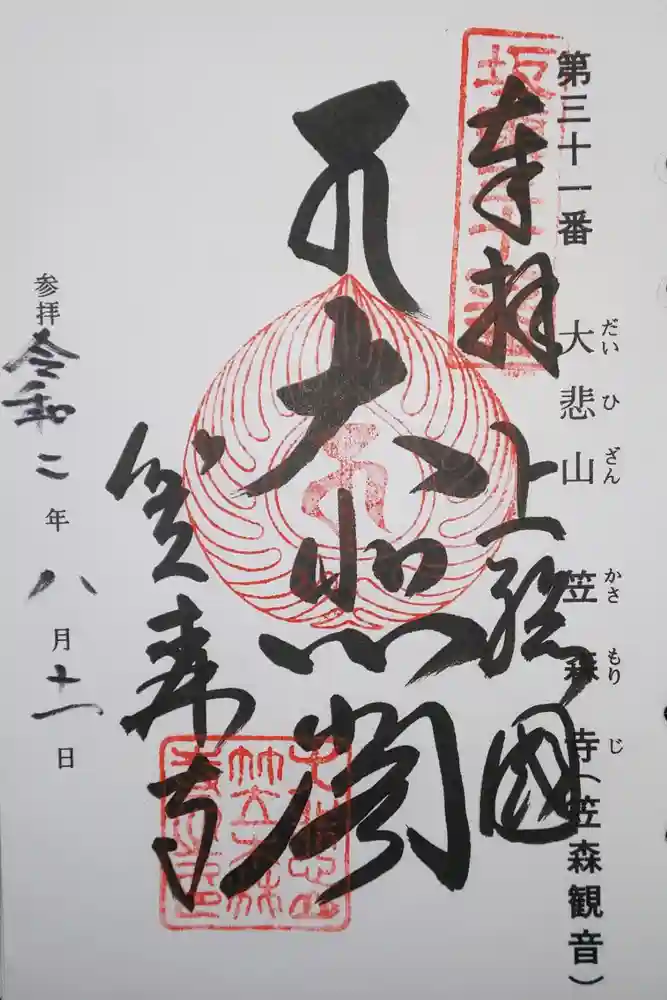 第三十一番 大悲山 笠森寺(笠森観音)
だい ひ ざん かさ もり じ
奉拝
上總國
大悲閣
笠森寺
参拝 令和二年八月十一日